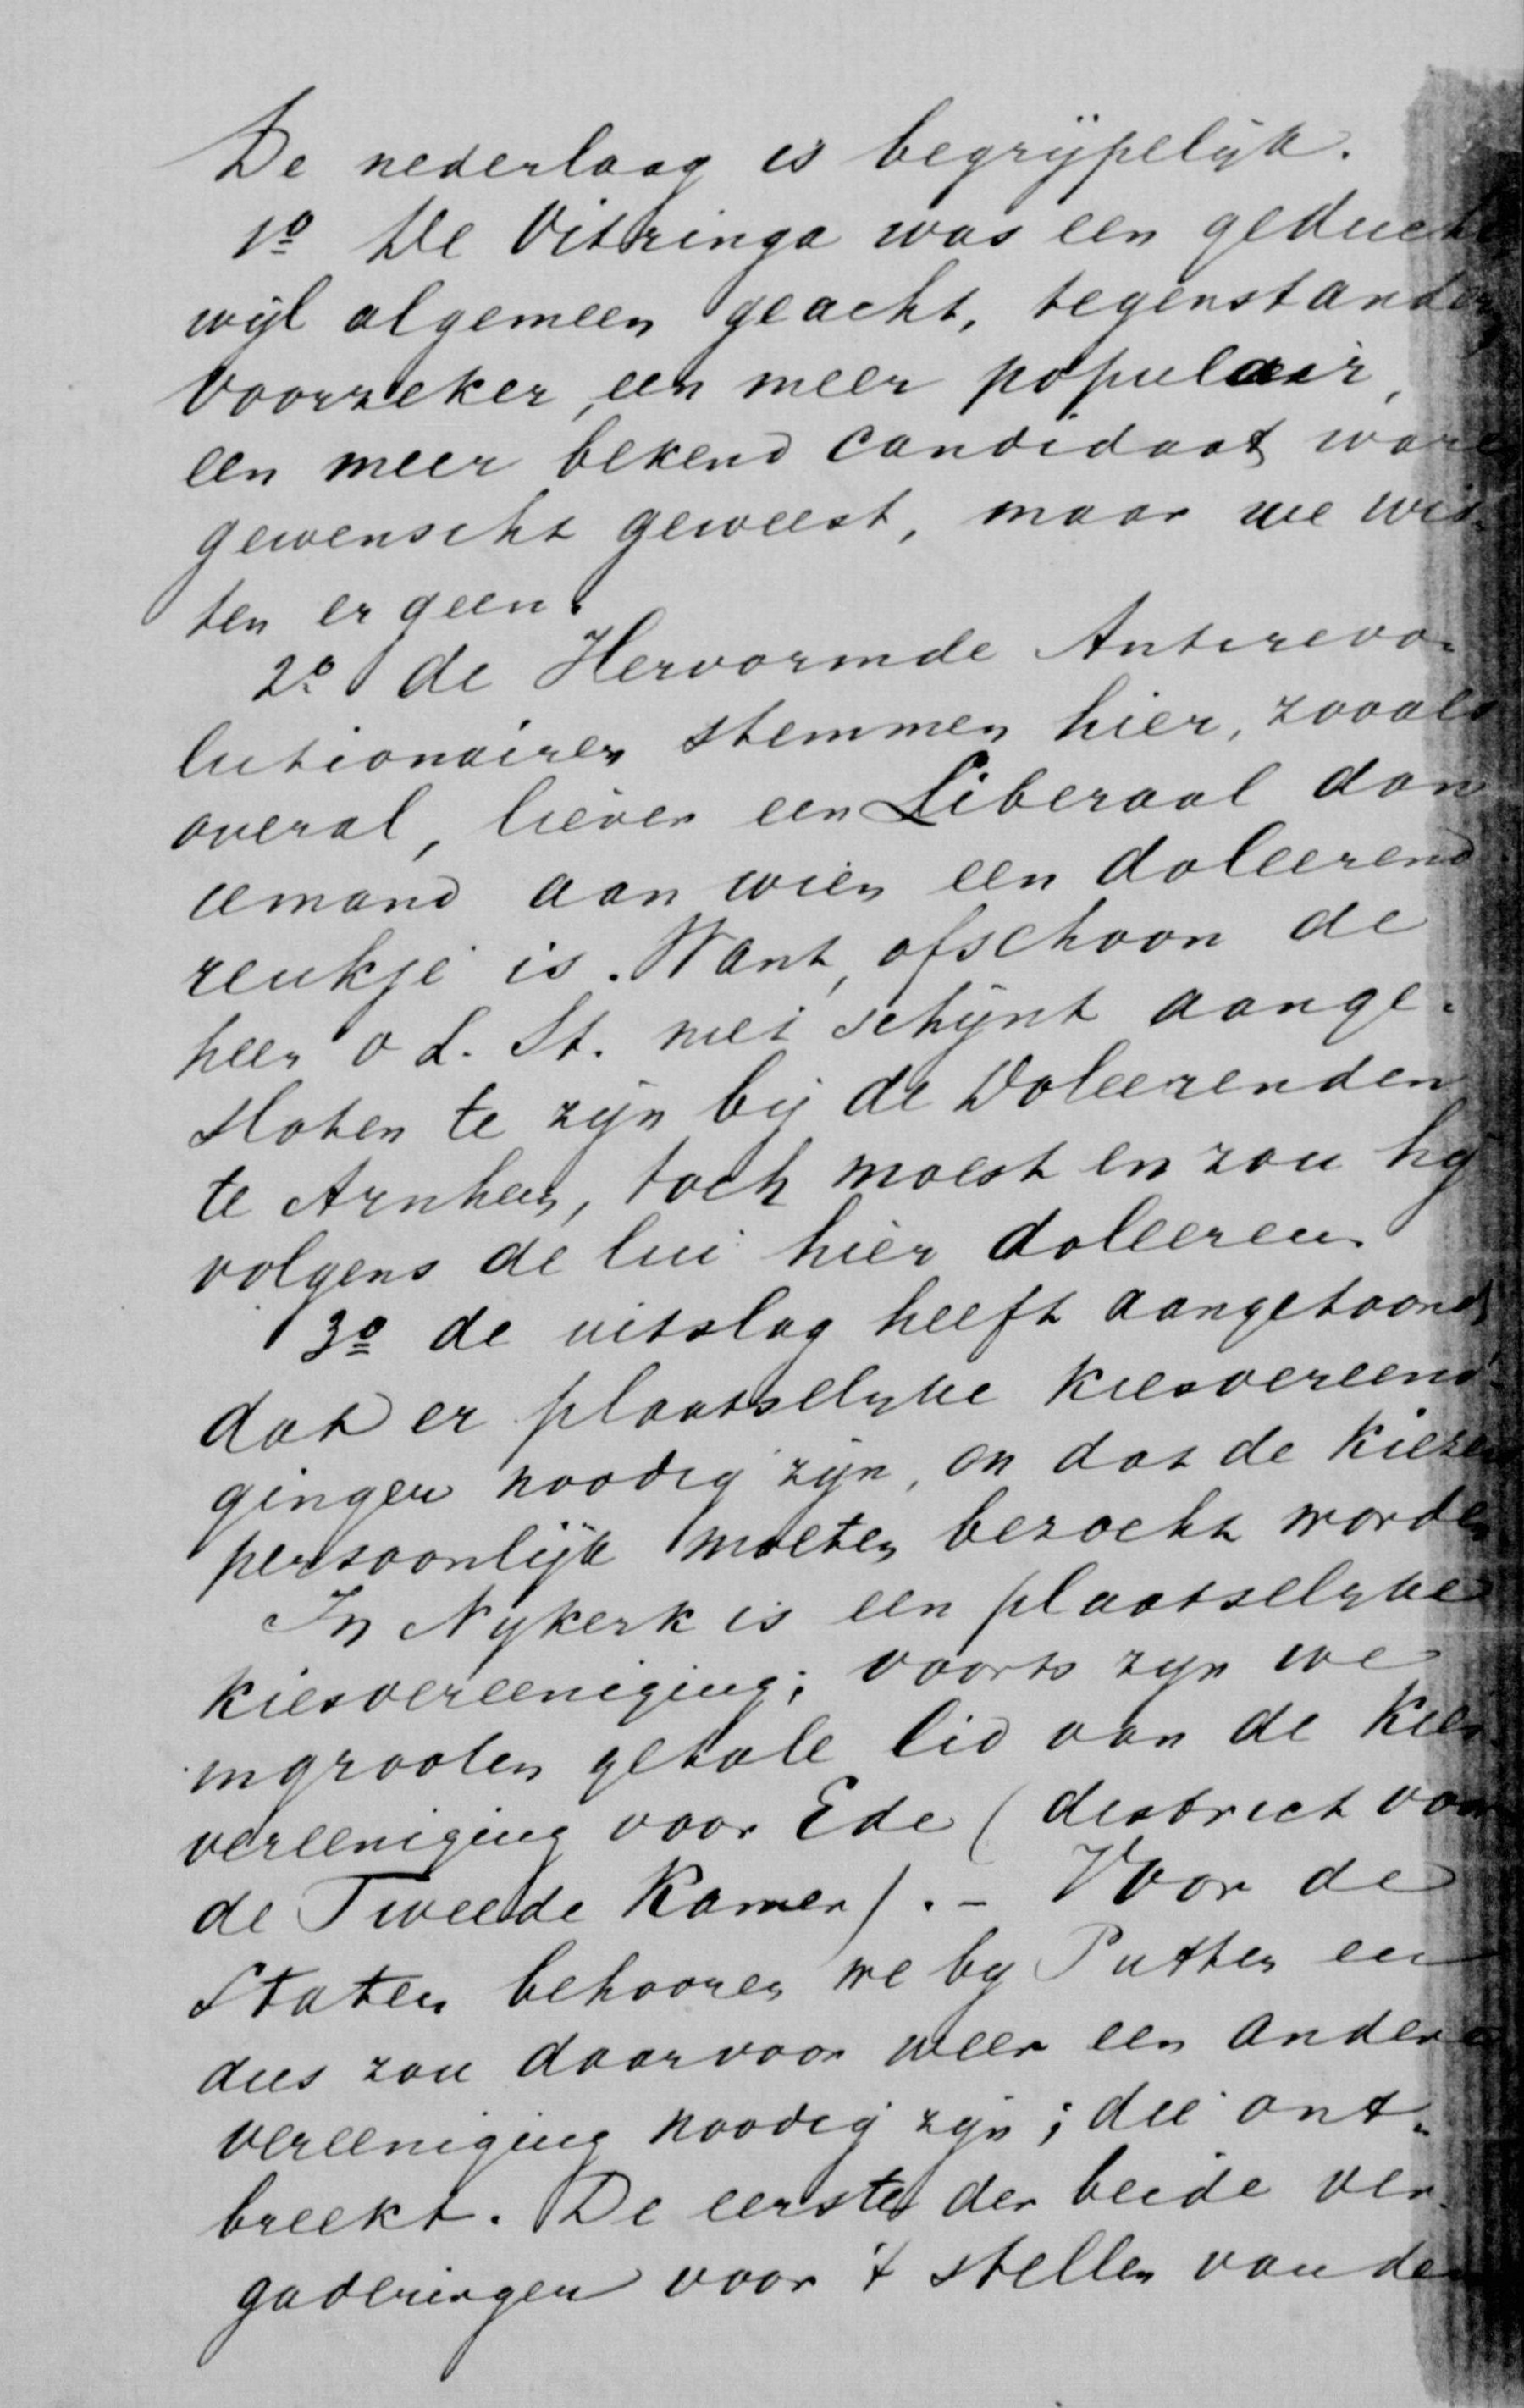 De nederlaag is begrijpelijk.
1º de Vitringa was een geducht
wijl algemeen geacht, tegenstander,
voorzeker, een meer populair,
een meer bekend candidaat ware
gewenscht geweest, maar we wis-
ten er geen.
2º de Hervormde Antirevo-
lutionairen stemmen hier, zooals
overal, liever een Liberaal dan
iemand aan wien een doleerend
reukje is. Want, ofschoon de
heer v L. St. niet schijnt aange-
sloten te zijn bij de Doleerenden
te Arnhem, toch moest en zou hij
volgens de lui hier doleeren.
3º de uitslag heeft aangetoond,
dat er plaatselijke kiesvereeni-
gingen noodig zijn, en dat de kiezers
persoonlijk moeten bezocht worden
In Nijkerk is een plaatselijke
kiesvereeniging; voorts zijn we
in grooten getale lid van de kies-
vereeniging voor Ede (district voor
de Tweede Kamer). - Voor de
Staten behooren we bij Putten en
dus zou daarvoor weer een andere
vereeniging noodig zijn; die ont-
breekt. De eerste der beide ver-
gaderingen voor 't stellen van den